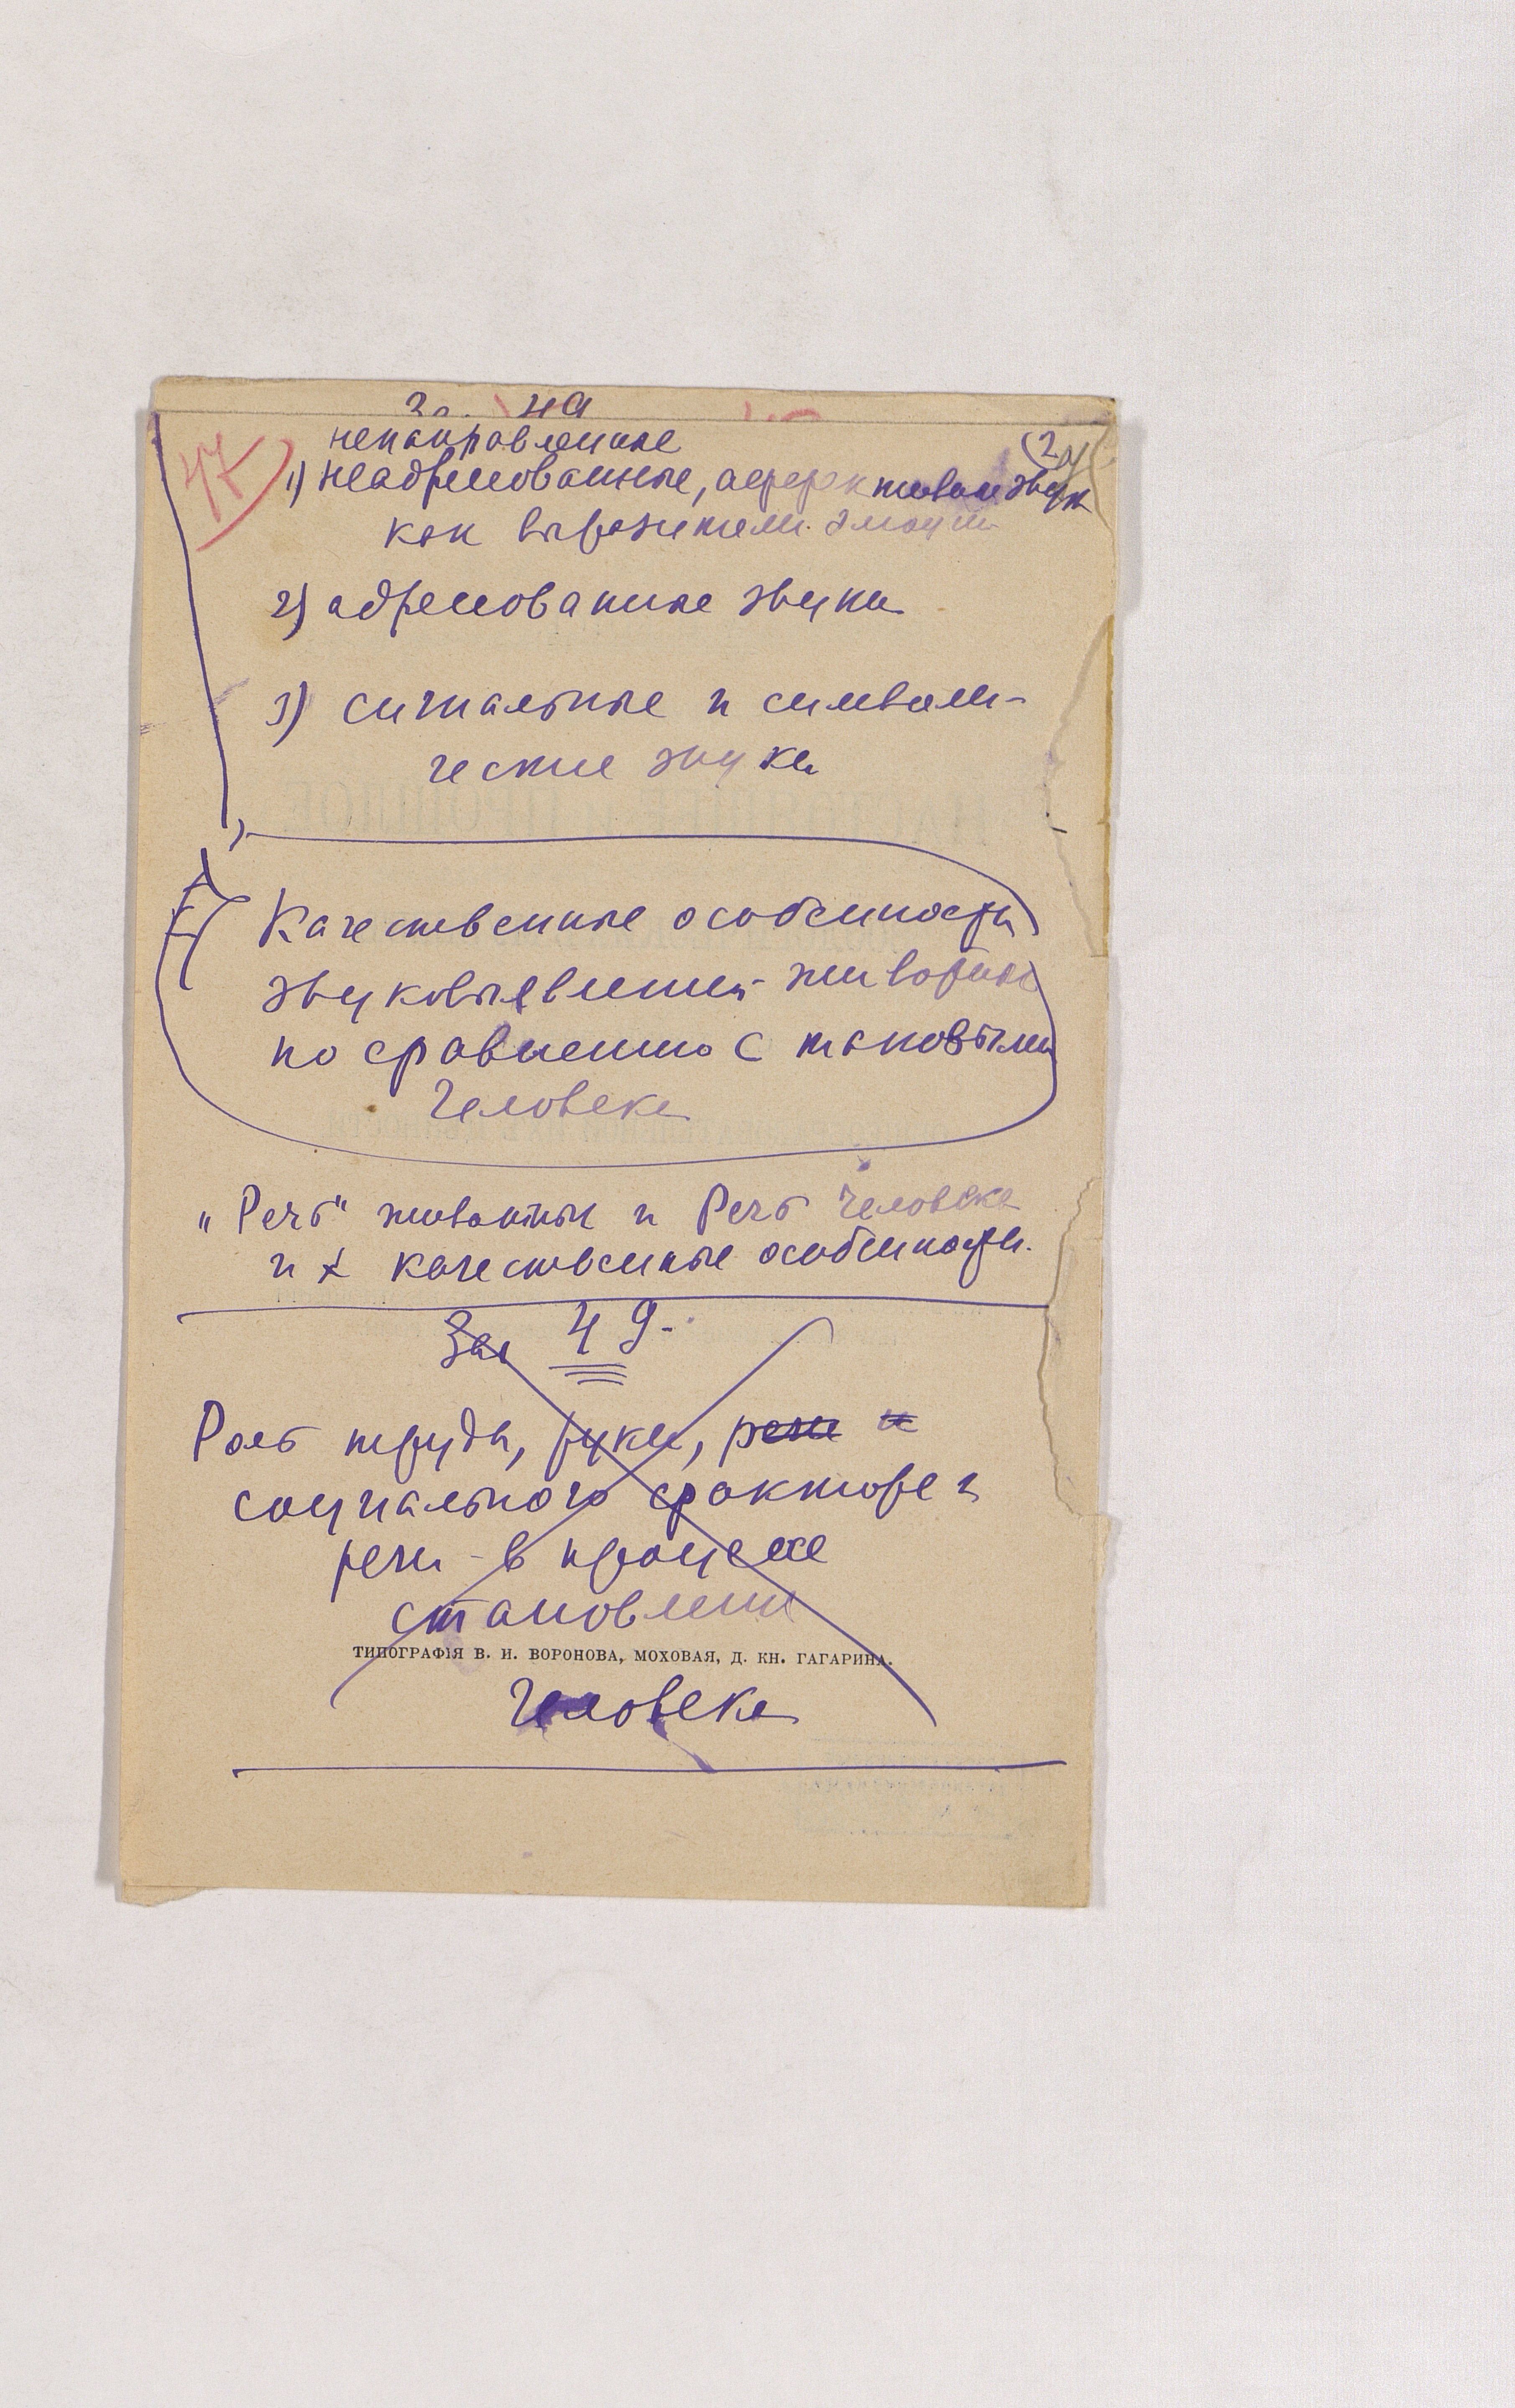 49
47
(2
ненаправленные
1) неадресованные, аффективные звуки
как выразители эмоций
2) адресованные звуки
3) сигнальные и символи-
ческие звуки
Качественные особенности
звуковыявлений животных
по сравнению с таковыми
Человека
„Речь" животных и Речь Человека
и их качественные особенности.
Зал 49-
Роль труда, руки, речи и
социального фактора и
речи - в процессе
становления
ТИПОГРАФІЯ В. И. ВОРОНОВА, МОХОВАЯ, Д. КН. ГАГАРИНА.
Человека